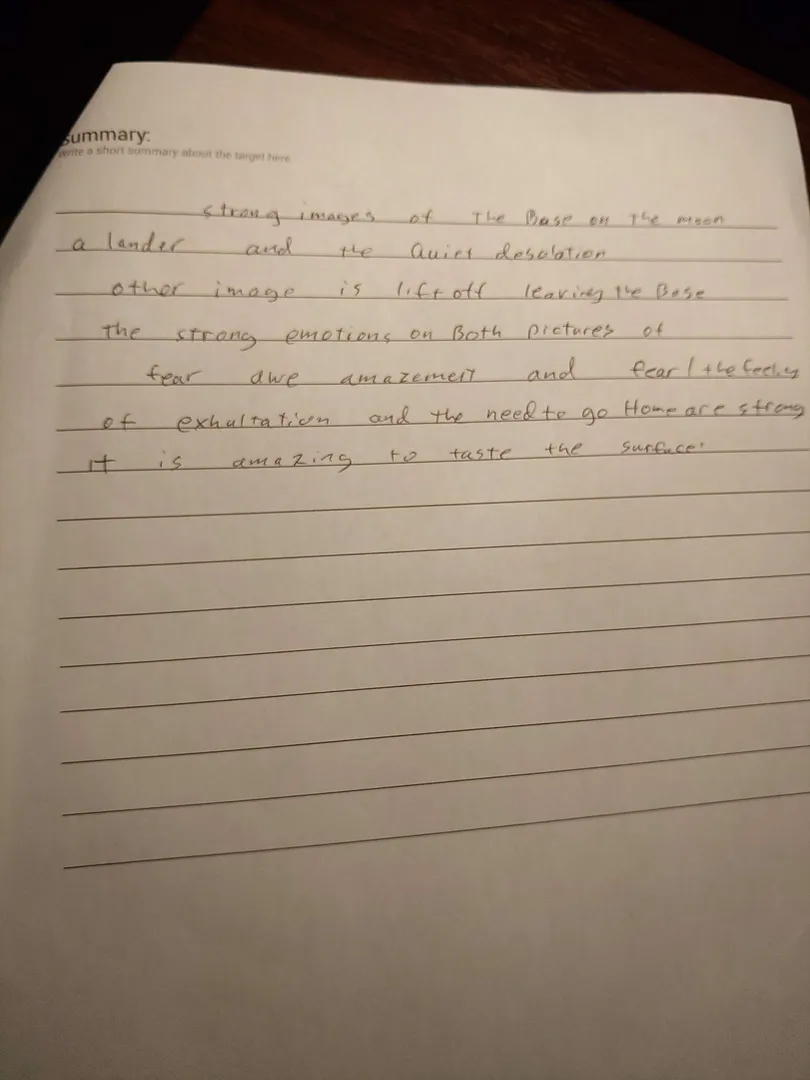 Summary:
write a short summary about the target here
strong images of The Base on The moon
a lander and the Quiet desolation
other image is liftoff leaving the Base
The strong emotions on Both pictures of
fear awe amazement and fear / the feeling
of exhultation and the need to go Home are strong
it is amazing to taste the surface.